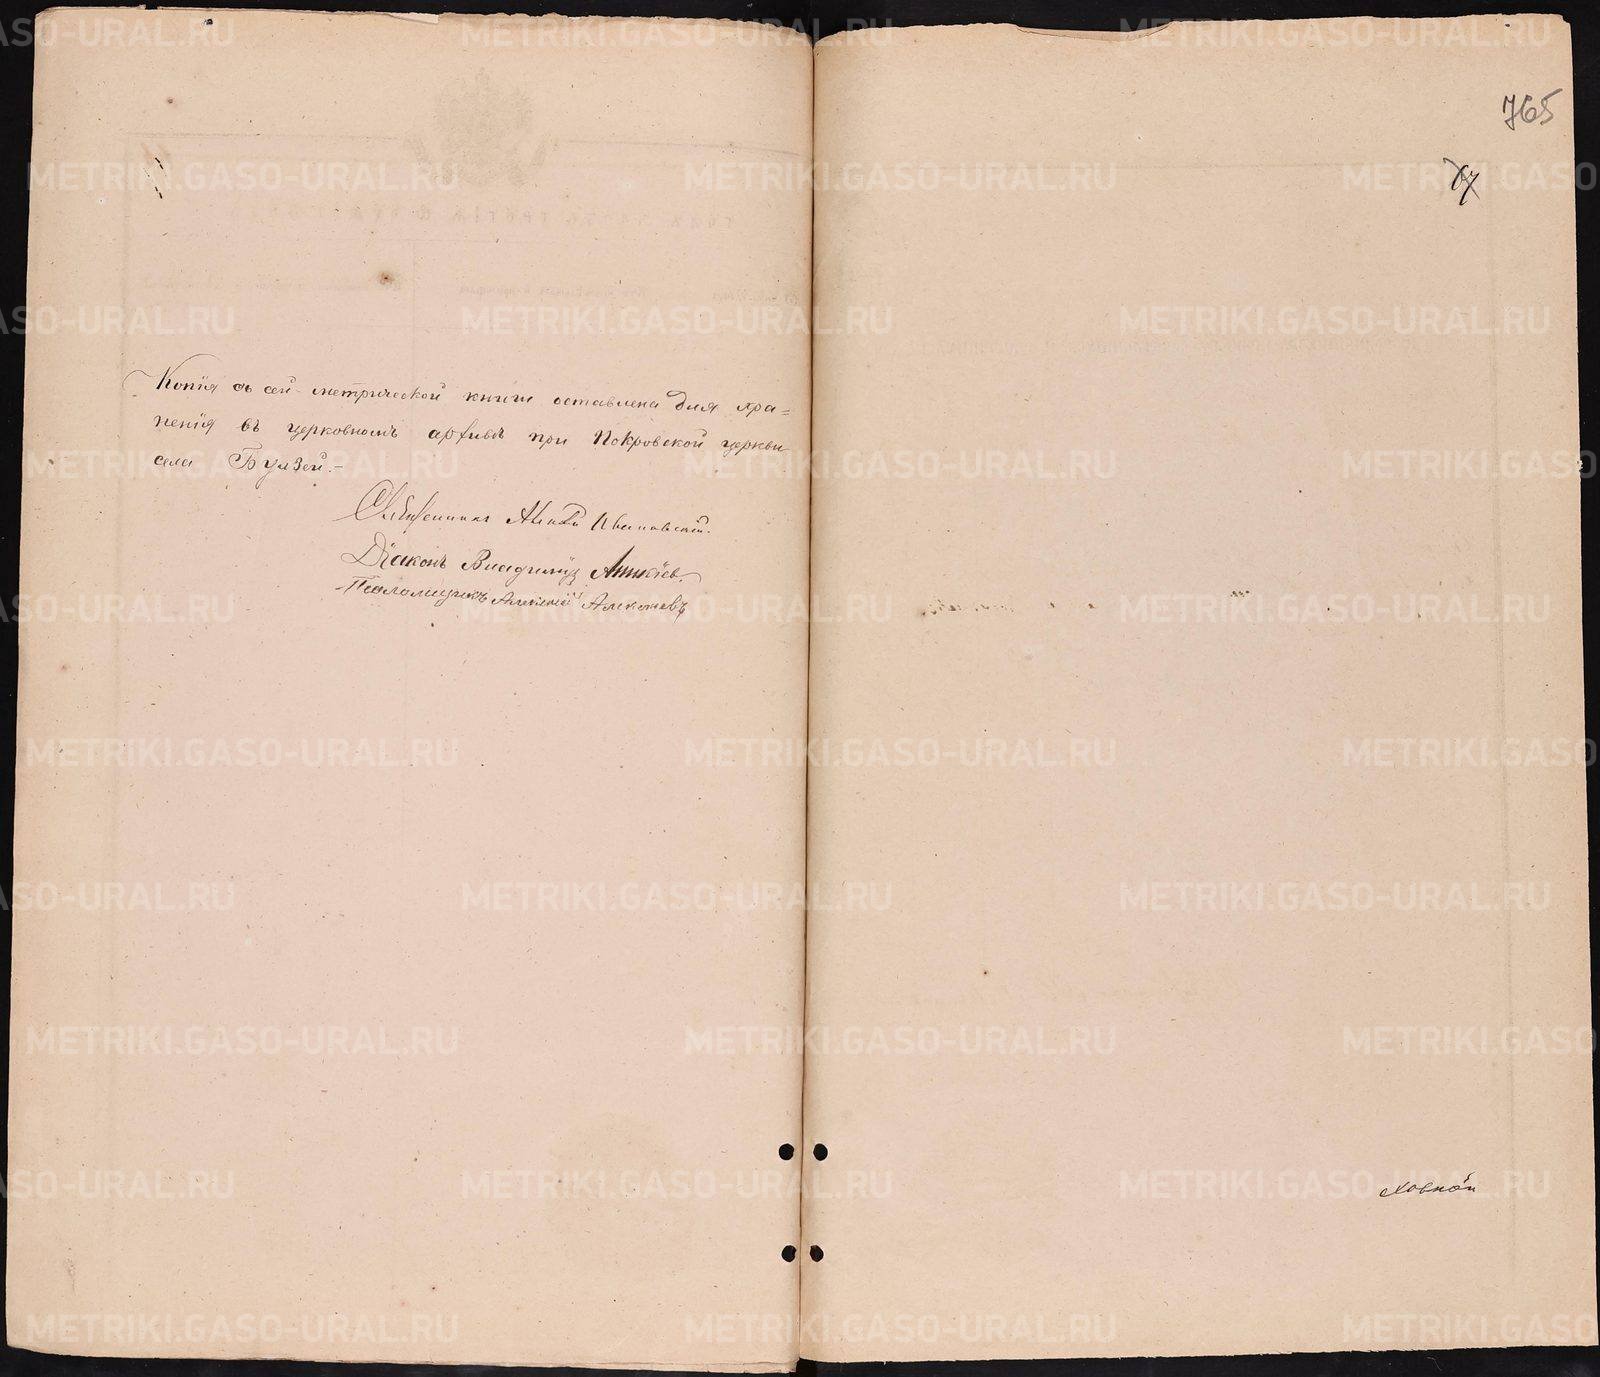 Копія съ сей метрической книги оставлена для хра=
ненія въ церковномъ архивѣ при Покровской церкви
села Булзей.-
Священникъ Ивановскій.
Діаконъ Владиміръ Аникіев.
Псаломщикъ Алексій
765
67
ховной
METRIKI.GASO-URAL.RU